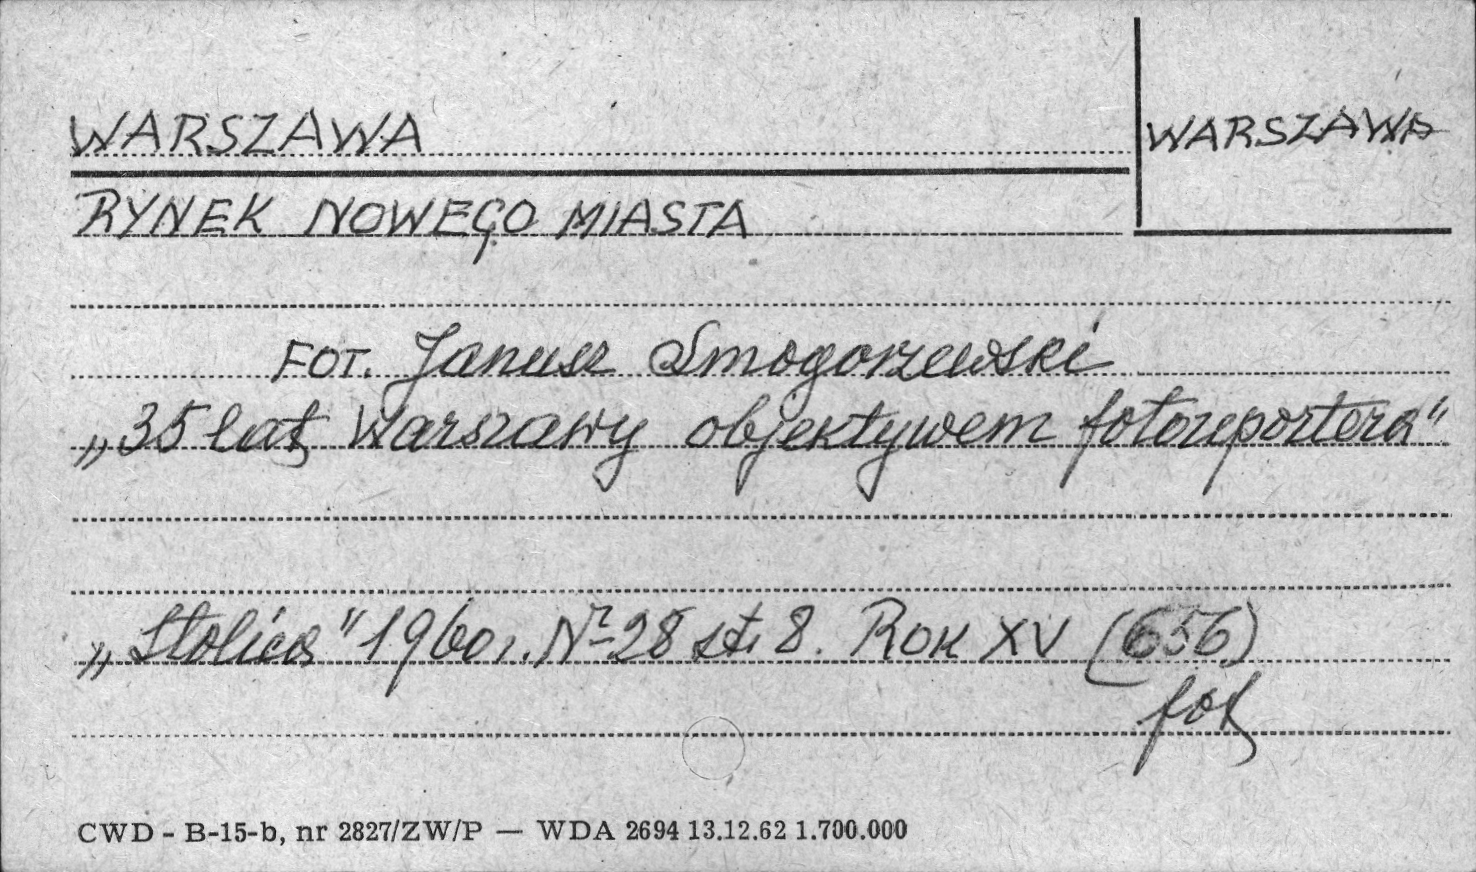 WARSZAWA
WARSZAWA
RYNEK NOWEGO MIASTA
FOT. Janusz Smogorzewski
„35 lat Warszawy objektywem fotoreportera"
„Stolica" 1960 r. Nr 28 st. 8. ROK XV (656)
fot
CWD - B-15-b, nr 2827/ZW/P — WDA 2694 13.12.62 1.700.000